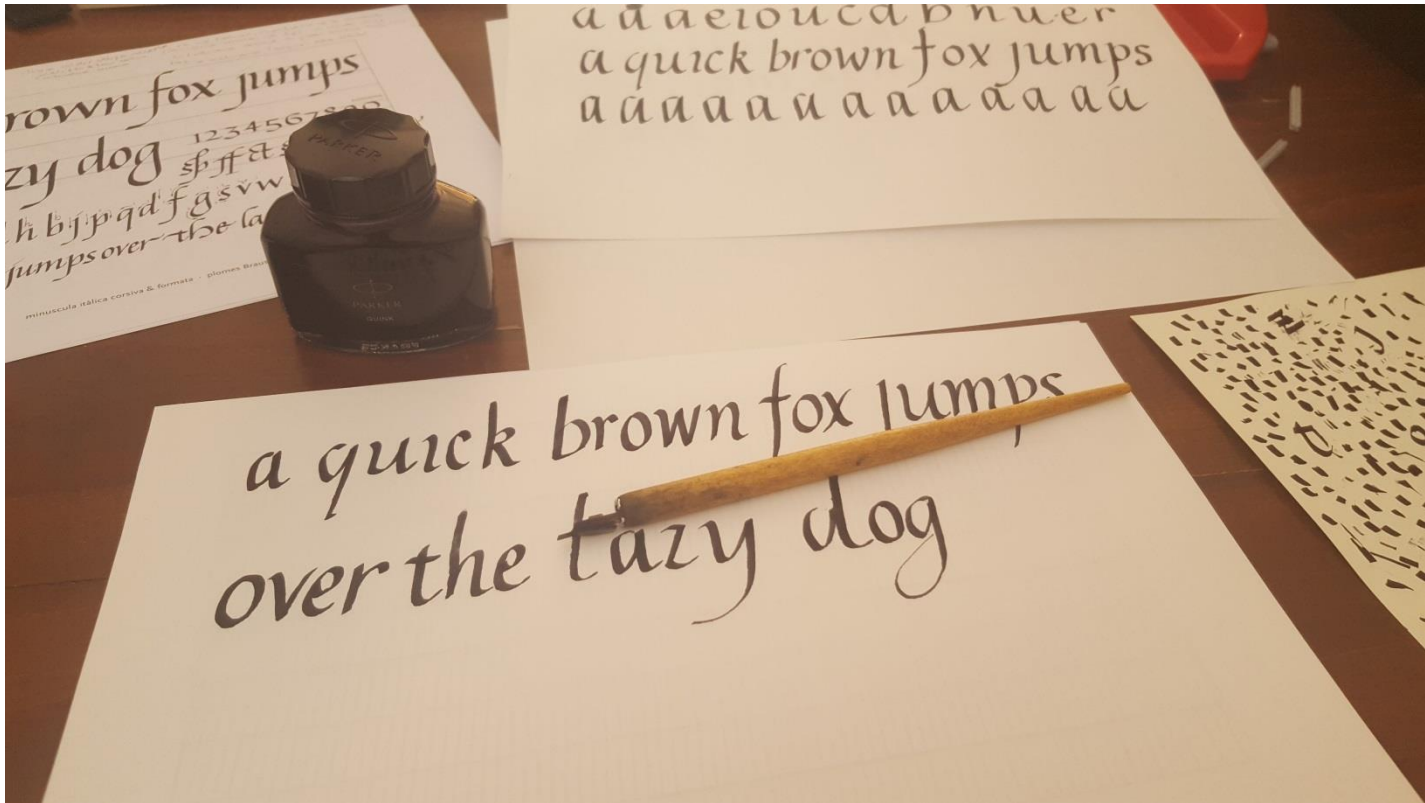 rown fox jumps
zy dog 1234567890
sp ff ct
h b j p q d f g s v w
jumps over the la
minuscula itálica corsiva & formata · plomes Brau
PARKER
PARKER
QUINK
a a a e i o u c d b h u e r
a quick brown fox jumps
a a a a a a a a a a a a a
a quick brown fox jumps
over the lazy dog